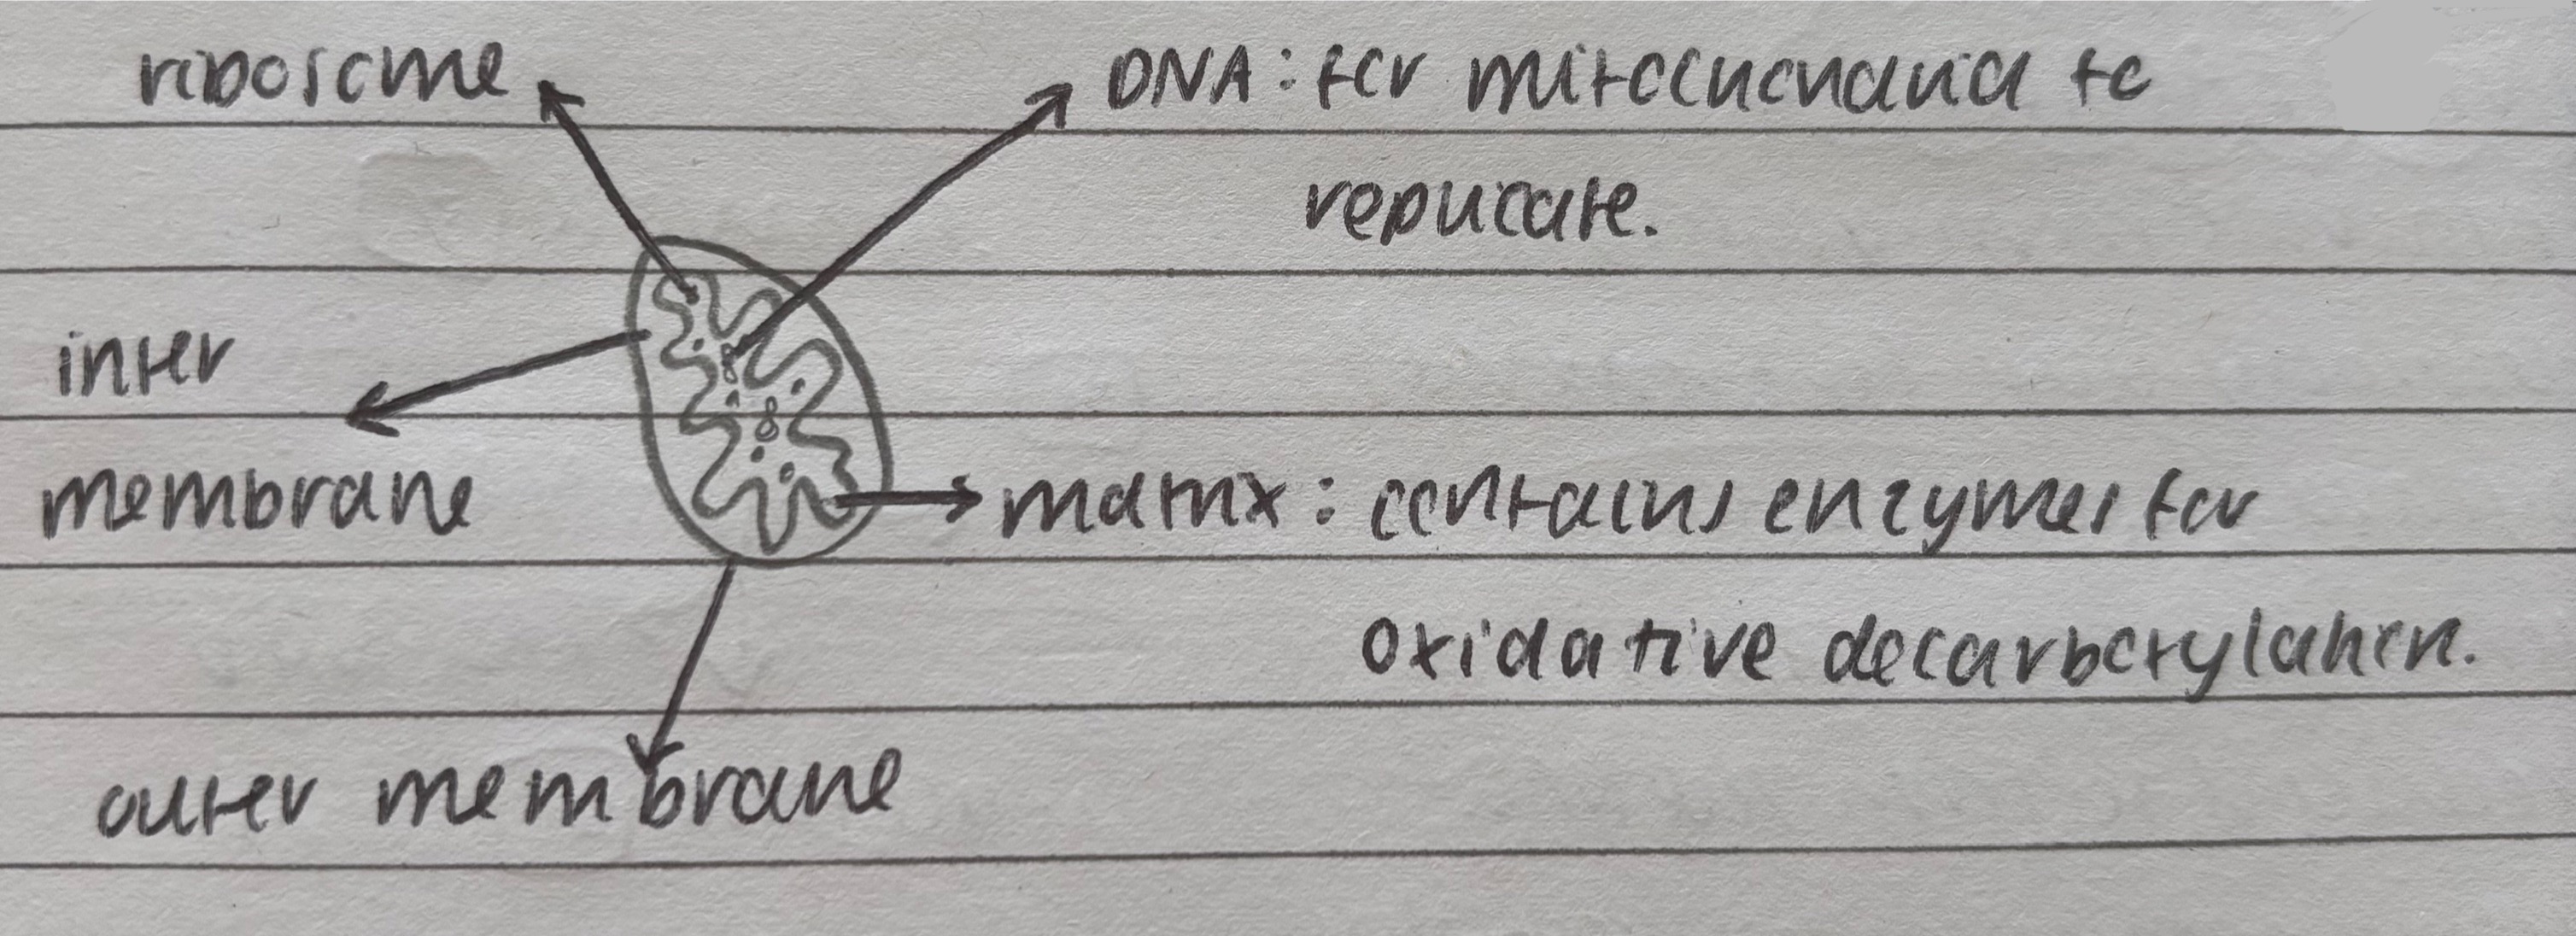 ribosome
DNA: for mitochondria to
replicate.
inter
membrane
matrix: contains enzymes for
oxidative decarboxylation.
outer membrane